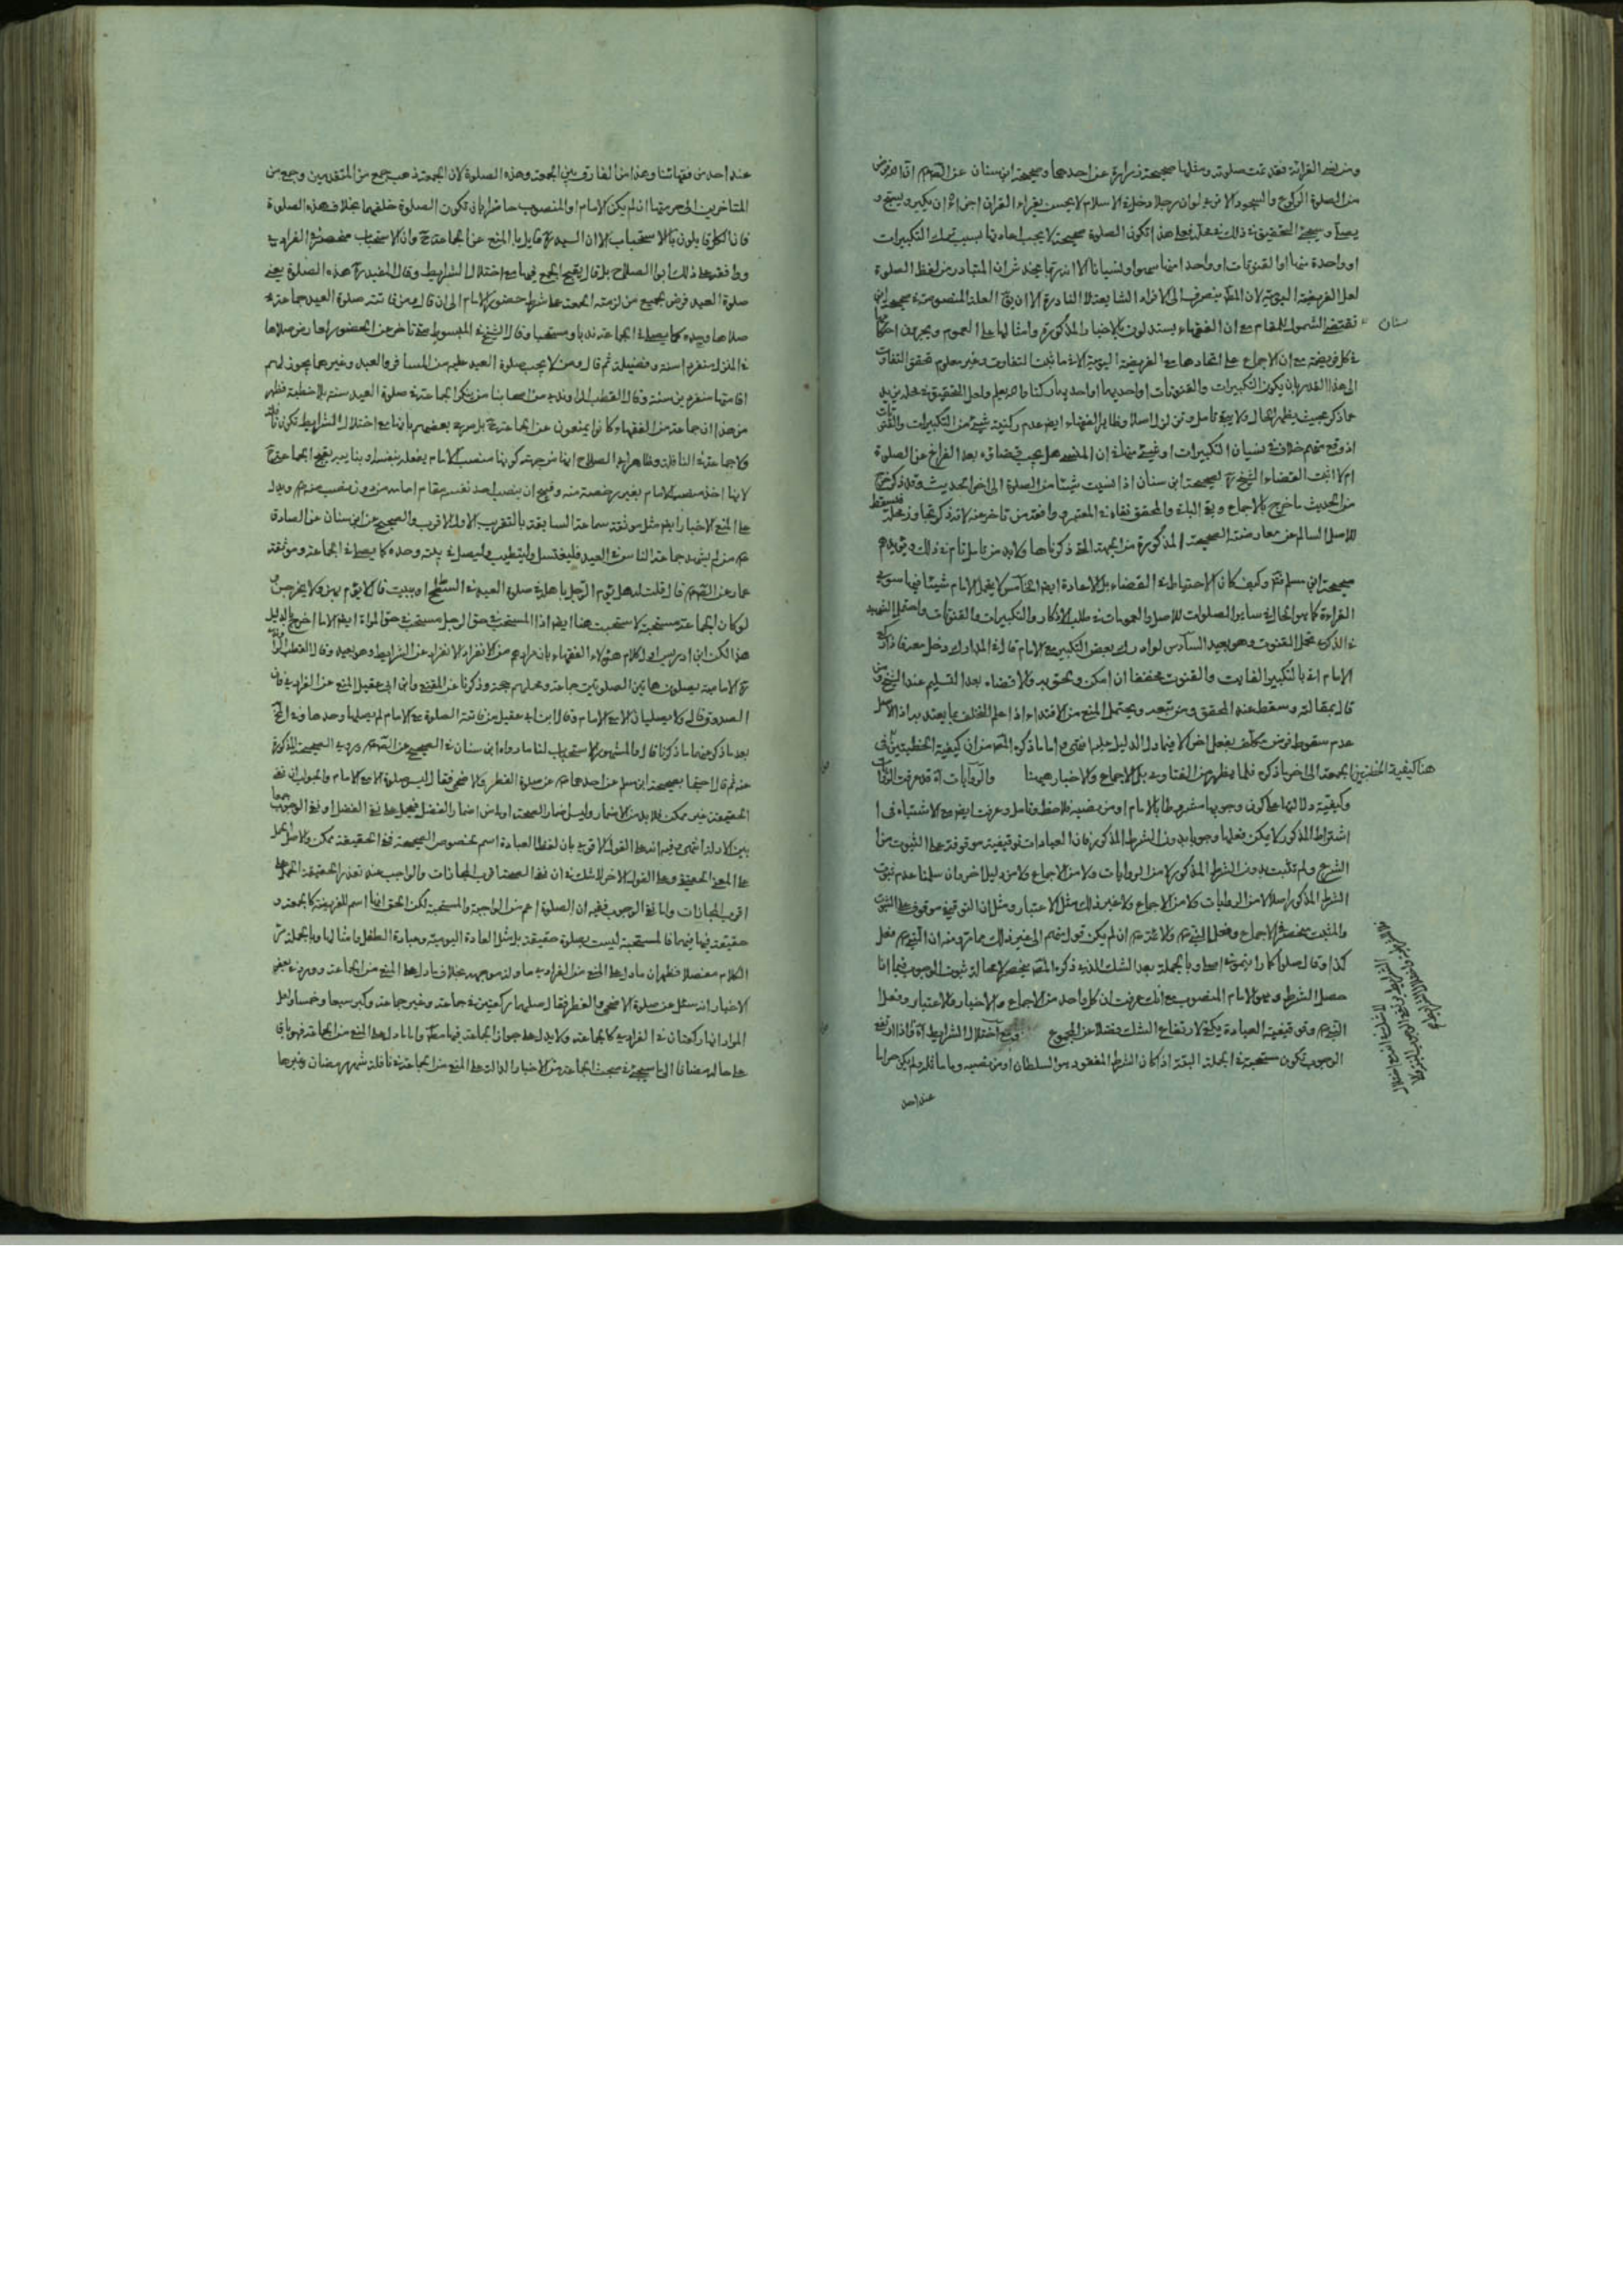 ومن نسى القرائة فقد تمت صلوته ومثلها صحيحة زرارة عن احدهما وصحيحة ابن سنان عن الصم ان الله فرض
من الصلوة الركوع والسجود الا ترى لو ان رجلا دخل فى الاسلام لا يحسن يقراء القران اجزاه ان يكبر ويسبح و
يصلى وسيجئ التحقيق فى ذلك فى محله فعلى هذا تكون الصلوة صحيحة لا يجب اعادتها بسبب ترك التكبيرات
او واحدة منها او القنوتات او واحد منها سهوا ونسيانا الا انه ربما يخدش ان المتبادر من لفظ الصلوة
لعل الفريضة اليومية لان المطلق ينصرف الى الافراد الشايعة لا النادرة الا ان يق العلة المنصوصة فى صحيحة ابن
سنان
تقتضى الشمول للمقام مع ان الفقهاء يستدلون بالاخبار المذكورة وامثالها على العموم ويجرون احكامها
فى كل فريضة مع ان الاجماع على اتحادها مع الفريضة اليومية الا فى ما ثبت التفاوت وغير معلوم تحقق التفاوت
الى هذا القدر بان يكون التكبيرات والقنوتات او احديهما او احد يها ركنا والله يعلم ولعل التحقيق فى محله يزيد
ما ذكر بحيث يظهر الحال ولا يبقى تامل وتزلزل اصلا وظاهر الفقهاء ايضا عدم ركنية شئ من التكبيرات والقنوتات
اذ وقع منهم خلاف فى نسيان التكبيرات او شئ منها فى ان المنسى هل يجب قضاؤه بعد الفراغ عن الصلوة
ام لا اثبت القضاء الشيخ ره لصحيحة ابن سنان اذا نسيت شيئا من الصلوة الى اخر الحديث وقد ذكر خرج
من الحديث ما خرج بالاجماع وبقى الباقى والمحقق نفاه فى المعتبر ووافقه من تاخر عنه لانه ذكر تجاوز محله فيسقط
للاصل السالم عن معارضة الصحيحة المذكورة من الجهة التى ذكرناها ولا بد من تامل تام فى ذلك ويؤيدهم
صحيحة ابن مسلم وكيف كان الاحتياط فى القضاء بل الاعادة ايضا الخامس لا يحمل الامام شيئا فيها سوى
القراءة كما هو الحال فى ساير الصلوات للاصل والعمومات فى طلب الاذكار والتكبيرات والقنوتات واحتمل الشهيد
فى الذكرى تحمل القنوت وهو بعيد السادس لو ادرك بعض التكبير مع الامام قال فى المدارك دخل معه فاذا ركع
الامام اتى بالتكبير الفايت والقنوت مخففا ان امكن ولحق به والا قضاه بعد التسليم عند الشيخ ومن
قال بمقالته وسقط عند المحقق ومن تبعه ويحتمل المنع من الاقتداء اذا علم التخلف بما يعتد به اذ الاصل
عدم سقوط فرض مكلف بفعل اخر الا فيما دل الدليل عليه انتهى واما ما ذكره المصه من ان كيفية الخطبتين فى
هنا كيفية الخطبتين الجمعة الى اخر ما ذكره فلما يظهر من الفتاوى بل الاجماع والاخبار هيهنا والروايات آه قد عرفت الروايات
وكيفية دلالتها على كون وجوبها مشروطا بالامام او من نصبه فلاحظ وتامل وعرفت ايضا مع الاشتباه فى ا
اشتراط المذكور لا يمكن فعلها وجوبا بدون الشرط المذكور فان العبادات توقيفية موقوفة على الثبوت من ا
الشرع ولم تثبت بدون الشرط المذكور لا من الروايات ولا من الاجماع ولا من دليل اخر وان سلمنا عدم ثبوت
الشرط المذكور اصلا لا من الروايات ولا من الاجماع ولا غير ذلك مثل الاعتبار ومثل ان التوقيفى موقوف على الثبوت
والمثبت منحصر فى الاجماع وفعل النبى ص والائمة ع ان لم يكن قولهم الى غير ذلك مما مر منه ان النبى ص فعل
كذا وقال صلوا كما رايتمونى اصلى وبالجملة بعد الشك الذى ذكره المصه ينحصر لا محالة ثبوت الوجوب فيما اذا
حصل الشرط وهو الامام المنصوب مع انك عرفت ان كل واحد من الاجماع والاخبار والاعتبار وفعل
النبى ص وتوقيفية العبادة يكفى لارتفاع الشك فضلا عن المجموع ومع اختلال الشرايط آه واذا ارتفع
الوجوب تكون مستحبة فى الجملة البتة اذا كان الشرط المفقود هو السلطان او من نصبه وما ماثله ولم يكن حراما
عند احد
عند احد من فقهائنا وهذا من الفارق بين الجمعة وهذه الصلوة لان الجمعة ذهب جمع من المتقدمين وجمع من
المتاخرين الى حرمتها ان لم يكن الامام او المنصوب حاضرا بان تكون الصلوة خلفهما بخلاف هذه الصلوة
فان الكل قايلون بالاستحباب الا ان السيد ره قايل بالمنع عن الجماعة ح وان الاستحباب منحصر فى الفرادى
ووافقه على ذلك ابو الصلاح بل قال يقبح الجمع فيها مع اختلال الشرايط وقال المفيد ره هذه الصلوة يعنى
صلوة العيد فرض لجميع من لزمته الجمعة على شرط حضور الامام الى ان قال ومن فاتته صلوة العيد جماعة
صلاها وحده كما يصلى فى الجماعة ندبا ومستحبا وقال الشيخ فى المبسوط متى تاخر عن الحضور لعارض صلاها
فى المنزل منفردا سنة وفضيلة ثم قال ومن لا يجب صلوة العيد عليه من المسافر والعبد وغيرهما يجوز لهم
اقامتها منفردين سنة وقال القطب الراوندى من اصحابنا من ينكر الجماعة فى صلوة العيد سنة بلا خطبة فظهر
من هذا ان جماعة من الفقهاء كانوا يمنعون عن الجماعة ح بل صرح بعضهم بانها مع اختلال الشرايط تكون نافلة
ولا جماعة فى النافلة وظاهر ابى الصلاح انها من جهة كونها منصب الامام يفعله بنفسه او بنايبه يقبح الجماعة ح
لانها اخذ منصب الامام بغير رخصة منه وقبيح ان ينصب احد نفسه مقام امامه من دون نصب منه ويدل
على المنع الاخبار ايضا مثل موثقة سماعة السابقة بالتقريب الاول الاقرب والصحيح عن ابن سنان عن الصادق
ع من لم يشهد جماعة الناس فى العيد فليغتسل وليتطيب وليصل فى بيته وحده كما يصلى فى الجماعة وموثقة
عمار عن الصم قال قلت له هل يؤم الرجل باهله فى صلوة العيد فى السطح او بيت قال لا يؤم بهن ولا يخرجن و
لو كان الجماعة مستحبة لاستحبت هنا ايضا اذ المستحب فى حق الرجل مستحب فى حق المراة ايضا الا ما اخرج بالدليل
هذا لكن ابن ادريس اول كلام هؤلاء الفقهاء بان مرادهم من الانفراد الانفراد عن الشرايط وهو بعيد وقال القطب الراوندى
ره الامامية يصلون هاتين الصلوتين جماعة وعملهم حجة وذكرنا عن المقنع وابن ابى عقيل المنع عن الفرادى فان
الصدوق قال ولا يصليان الا مع الامام وقال ابن ابى عقيل من فاتته الصلوة مع الامام لم يصلها وحده وفى المخ
بعد ما ذكر عنهما ما ذكرنا قال والمشهور الاستحباب لنا ما رواه ابن سنان فى الصحيح عن الصم ع وروى الصحيحة المذكورة
عنه ثم قال احتجا بصحيحة ابن مسلم عن احدهما ع عن صلوة الفطر والاضحى فقال ليس صلوة الا مع الامام والجواب ان نفى
الحقيقة غير ممكن فلا بد من الاضمار وليس اضمار الصحة اولى من اضمار الفضل فيحمل على نفى الفضل او نفى الوجوب جمعا
بين الادلة انتهى وفيه انه على القول الاقوى بان لفظ العبادة اسم لخصوص الصحيحة فنفى الحقيقة ممكن والاصل الحمل
على المعنى الحقيقى وعلى القول الاخر لا شك فى ان نفى الصحة اقرب المجازات والواجب عند تعذر الحقيقة الحمل على
اقرب المجازات واما نفى الوجوب ففيه ان الصلوة اعم من الواجبة والمستحبة لكن الحق انها اسم للفريضة كالجمعة و
حقيقة فيها فيهما فالمستحبة ليست بصلوة حقيقة بل مثل العادة اليومية وعبادة الطفل وامثالها وبالجملة مر
الكلام مفصلا فظهر ان ما دل على المنع من الفرادى ماول او موجه بخلاف ما دل على المنع من الجماعة وورد فى بعض
الاخبار انه سئل عن صلوة الاضحى والفطر فقال صلهما ركعتين فى جماعة وغير جماعة وكبر سبعا وخمسا ولعل
المراد انها ركعتان فى الفرادى كالجماعة ولا يدل على جواز الجماعة فيها مطلقا واما ما دل على المنع من الجماعة فهو باق
على حاله مضافا الى ما سيجئ فى مبحث الجماعة من الاخبار الدالة على المنع من الجماعة فى نافلة شهر رمضان وغيرها